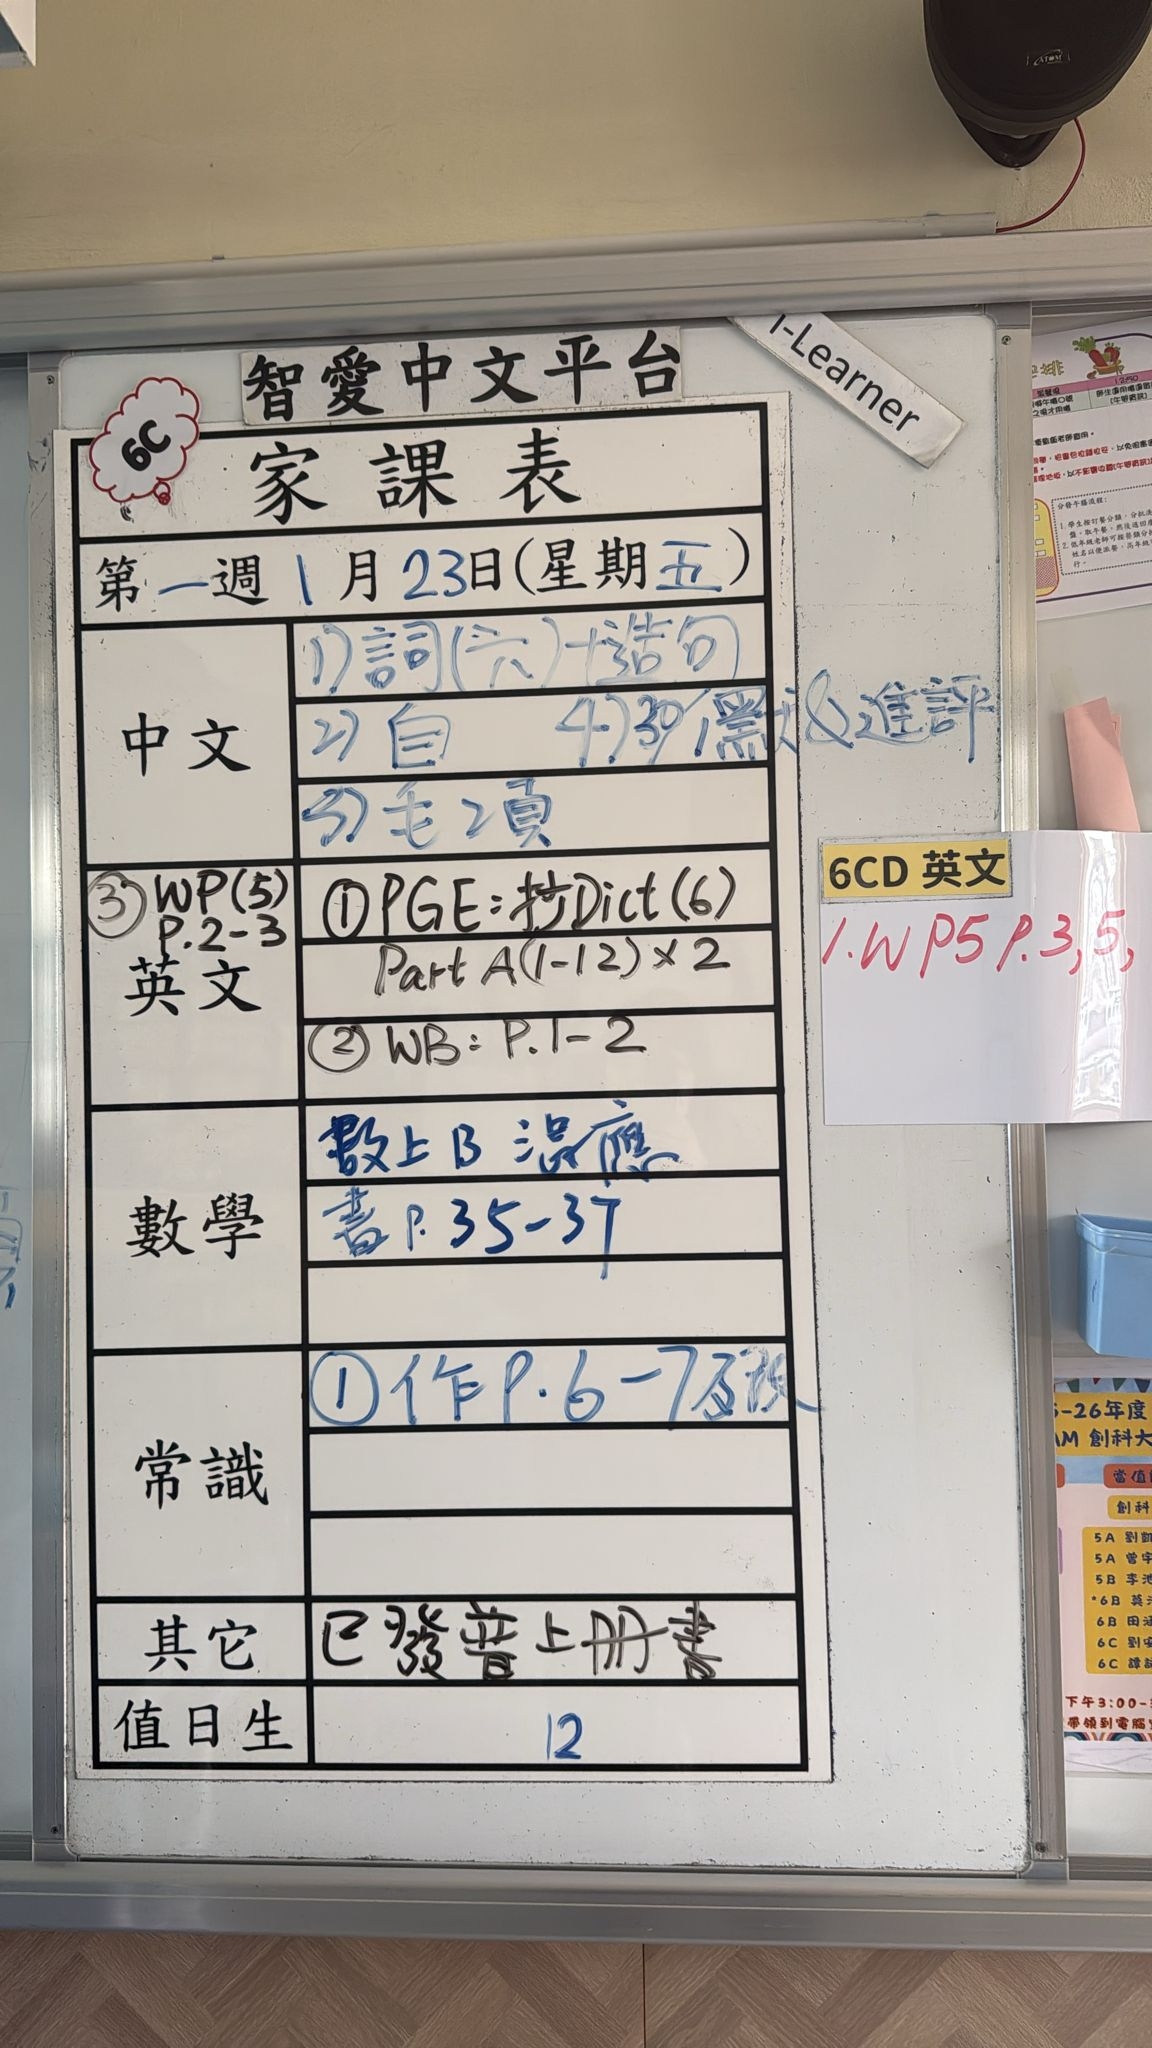 智愛中文平台
i-Learner
6C
家課表
第一週 1月23日(星期五)
中文
1) 詞(六)+造句
2) 自 4)
進評
3) 毛2頁
英文
①PGE:抄Dict(6)
Part A(1-12)×2
② WB: P.1-2
③ WP(5)
P.2-3
6CD 英文
1.WP5 P.3,5,
數學
數上B
書P.35-37
常識
①作P.6-7
其它
已發普上冊書
值日生
12
ATOM
分發午膳流程:
-26年度
創科大
當值
創科
5A 劉
5A 曾
5B 李
*6B 莫
6B 田
6C 劉
6C 譚
下午3:00-
帶領到電腦